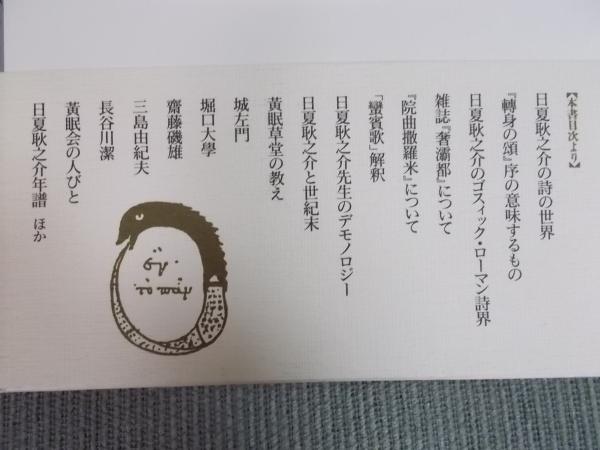 【本書目次より】
日夏耿之介の詩の世界
『轉身の頌』序の意味するもの
日夏耿之介のゴスィック・ローマン詩界
雑誌『奢灞都』について
『院曲撒羅米』について
「蠻賓歌」解釈
日夏耿之介先生のデモノロジー
日夏耿之介と世紀末
黄眠草堂の教え
城左門
堀口大學
齋藤磯雄
三島由紀夫
長谷川潔
黄眠会の人びと
日夏耿之介年譜 ほか